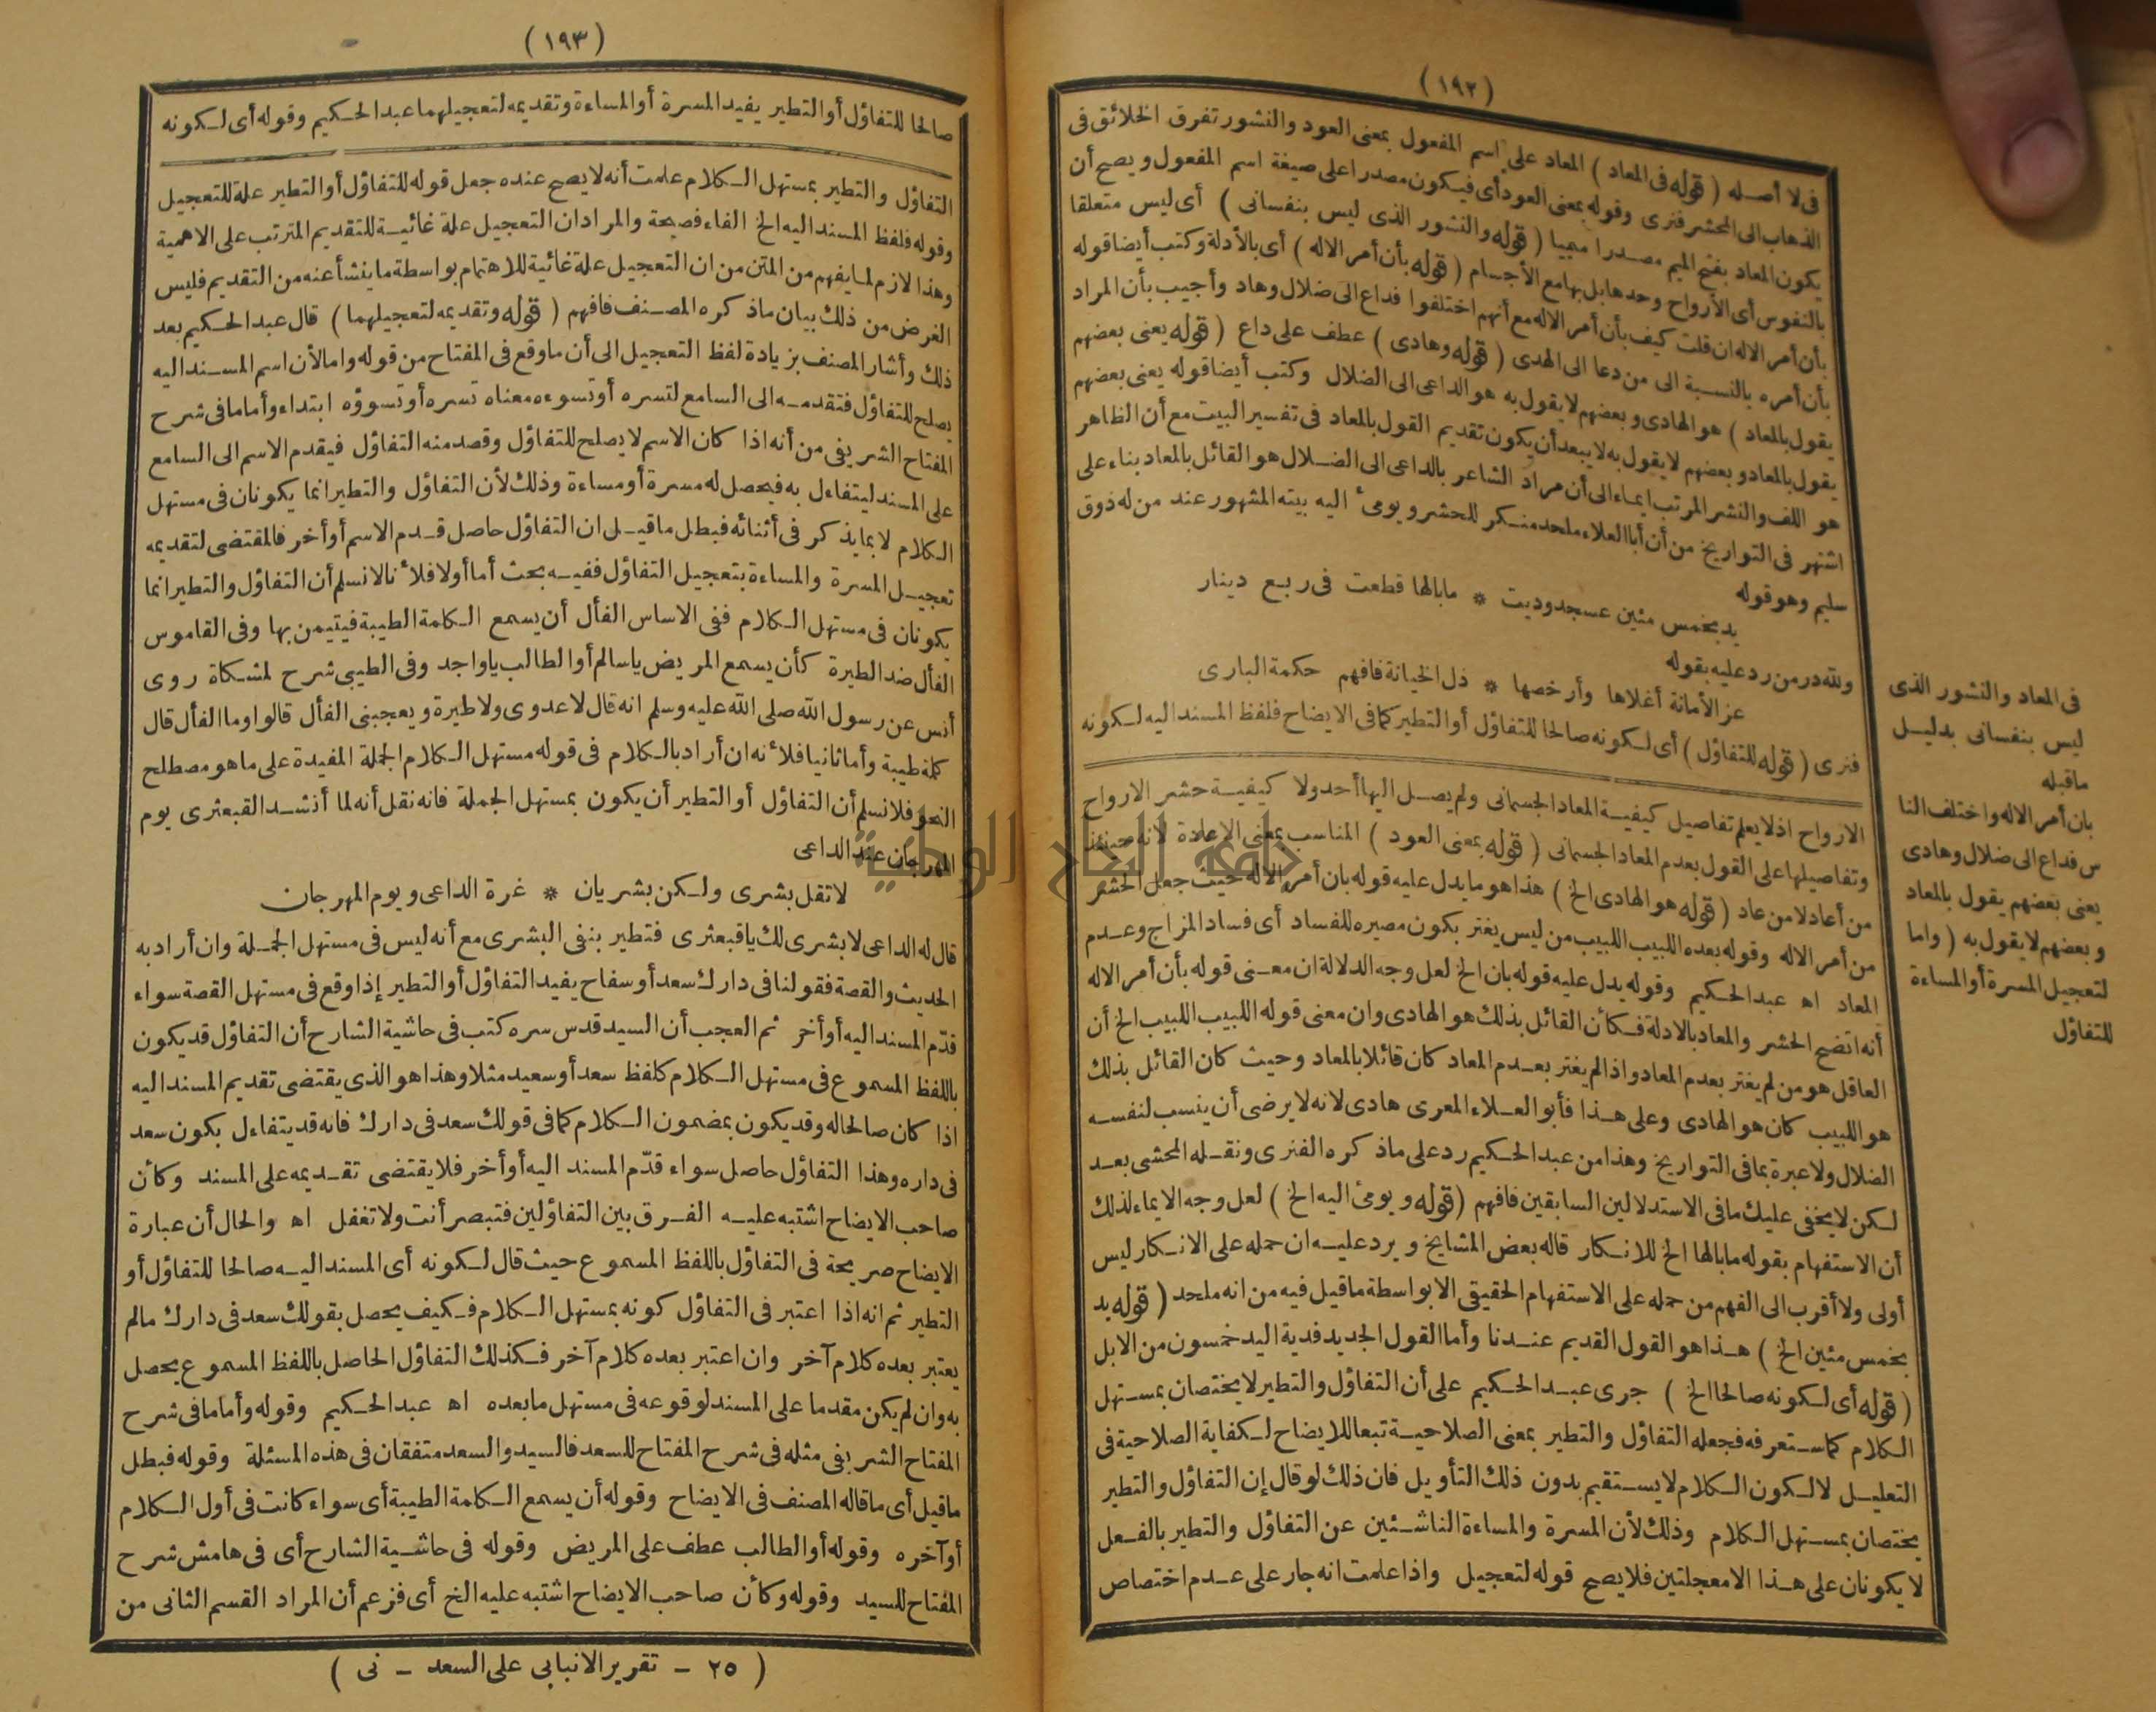 (١٩٢)
فى لا أصله (قوله فى المعاد) المعاد على اسم المفعول بمعنى العود والنشور تفرق الخلائق فى
الذهاب الى المحشر فنرى وقوله بمعنى العود أى فيكون مصدرا على صيغة اسم المفعول ويصح أن
يكون المعاد بفتح الميم مصدرا ميميا (قوله والنشور الذى ليس بنفسانى) أى ليس متعلقا
بالنفوس أى الأرواح وحدها بل بها مع الأجسام (قوله بأن أمر الاله) أى بالأدلة وكتب أيضا قوله
بأن أمر الاله ان قلت كيف بأن أمر الاله مع أنهم اختلفوا فداع الى ضلال وهاد وأجيب بأن المراد
بأن أمره بالنسبة الى من دعا الى الهدى (قوله وهادى) عطف على داع (قوله يعنى بعضهم
يقول بالمعاد) هو الهادى وبعضهم لا يقول به هو الداعى الى الضلال وكتب أيضا قوله يعنى بعضهم
يقول بالمعاد وبعضهم لا يقول به لا يبعد أن يكون تقديم القول بالمعاد فى تفسير البيت مع أن الظاهر
هو اللف والنشر المرتب ايماء الى أن مراد الشاعر بالداعى الى الضلال هو القائل بالمعاد بناء على
اشتهر فى التواريخ من أن أبا العلاء ملحد منكر للحشر ويومئ اليه بيته المشهور عند من له ذوق
سليم وهو قوله
يد بخمس مئين عسجد وديت * ما بالها قطعت فى ربع دينار
ولله در من رد عليه بقوله
عز الأمانة أغلاها وأرخصها * ذل الخيانة فافهم حكمة البارى
فنرى (قوله للتفاؤل) أى لكونه صالحا للتفاؤل أو التطير كما فى الايضاح فلفظ المسند اليه لكونه
الارواح اذ لا يعلم تفاصيل كيفية المعاد الجسمانى ولم يصل اليها أحد ولا كيفية حشر الارواح
وتفاصيلها على القول بعدم المعاد الجسمانى (قوله بمعنى العود) المناسب بمعنى الاعادة لانه حينئذ
من أعاد لا من عاد (قوله هو الهادى الخ) هذا هو ما يدل عليه قوله بان أمر الاله حيث جعل الحشر
من أمر الاله وقوله بعده اللبيب اللبيب من ليس يغتر بكون مصيره للفساد أى فساد المزاج وعدم
المعاد اه عبد الحكيم وقوله يدل عليه قوله بان الخ لعل وجه الدلالة ان معنى قوله بأن أمر الاله
أنه اتضح الحشر والمعاد بالادلة فكأن القائل بذلك هو الهادى وان معنى قوله اللبيب اللبيب الخ أن
العاقل هو من لم يغتر بعدم المعاد واذا لم يغتر بعدم المعاد كان قائلا بالمعاد وحيث كان القائل بذلك
هو اللبيب كان هو الهادى وعلى هذا فأبو العلاء المعرى هادى لانه لا يرضى أن ينسب لنفسه
الضلال ولا عبرة بما فى التواريخ وهذا من عبد الحكيم رد على ما ذكره الفنرى ونقله المحشى بعد
لكن لا يخفى عليك ما فى الاستدلالين السابقين فافهم (قوله ويومئ اليه الخ) لعل وجه الايماء لذلك
أن الاستفهام بقوله ما بالها الخ للانكار قاله بعض المشايخ ويرد عليه ان حمله على الانكار ليس
أولى ولا أقرب الى الفهم من حمله على الاستفهام الحقيقى الا بواسطة ما قيل فيه من انه ملحد (قوله يد
بخمس مئين الخ) هذا هو القول القديم عندنا وأما القول الجديد فدية اليد خمسون من الابل
(قوله أى لكونه صالحا الخ) جرى عبد الحكيم على أن التفاؤل والتطير لا يختصان بمستهل
الكلام كما ستعرفه فجعله التفاؤل والتطير بمعنى الصلاحية تبعا للايضاح لكفاية الصلاحية فى
التعليل لا لكون الكلام لا يستقيم بدون ذلك التأويل فان ذلك لو قال إن التفاؤل والتطير
يختصان بمستهل الكلام وذلك لأن المسرة والمساءة الناشئين عن التفاؤل والتطير بالفعل
لا يكونان على هذا الا معجلتين فلا يصح قوله لتعجيل واذا علمت انه جار على عدم اختصاص
فى المعاد والنشور الذى
ليس بنفسانى بدليل
ما قبله
بان أمر الاله واختلف النا
س فداع الى ضلال وهادى
يعنى بعضهم يقول بالمعاد
وبعضهم لا يقول به (واما
لتعجيل المسرة أو المساءة
للتفاؤل
(١٩٣)
صالحا للتفاؤل أو التطير يفيد المسرة أو المساءة وتقديمه لتعجيلهما عبد الحكيم وقوله أى لكونه
التفاؤل والتطير بمستهل الكلام علمت أنه لا يصح عنده جعل قوله للتفاؤل أو التطير علة للتعجيل
وقوله فلفظ المسند اليه الخ الفاء فصيحة والمراد ان التعجيل علة غائية للتقديم المترتب على الاهمية
وهذا لازم لما يفهم من المتن من ان التعجيل علة غائية للاهتمام بواسطة ما ينشأ عنه من التقديم فليس
الغرض من ذلك بيان ما ذكره المصنف فافهم (قوله وتقديمه لتعجيلهما) قال عبد الحكيم بعد
ذلك وأشار المصنف بزيادة لفظ التعجيل الى أن ما وقع فى المفتاح من قوله واما لأن اسم المسند اليه
يصلح للتفاؤل فتقدمه الى السامع لتسره أو تسوءه معناه تسره أو تسوؤه ابتداء وأما ما فى شرح
المفتاح الشريفى من أنه اذا كان الاسم لا يصلح للتفاؤل وقصد منه التفاؤل فيقدم الاسم الى السامع
على المسند ليتفاءل به فيحصل له مسرة أو مساءة وذلك لأن التفاؤل والتطير انما يكونان فى مستهل
الكلام لا بما يذكر فى أثنائه فبطل ما قيل ان التفاؤل حاصل قدم الاسم أو أخر فالمقتضى لتقديمه
تعجيل المسرة والمساءة بتعجيل التفاؤل ففيه بحث أما أولا فلأنا لا نسلم أن التفاؤل والتطير انما
يكونان فى مستهل الكلام ففى الاساس الفأل أن يسمع الكلمة الطيبة فيتيمن بها وفى القاموس
الفأل ضد الطيرة كأن يسمع المريض يا سالم أو الطالب يا واجد وفى الطيبى شرح لمشكاة روى
أنس عن رسول الله صلى الله عليه وسلم انه قال لا عدوى ولا طيرة ويعجبنى الفأل قالوا وما الفأل قال
كلمة طيبة وأما ثانيا فلأنه ان أراد بالكلام فى قوله مستهل الكلام الجملة المفيدة على ما هو مصطلح
النحو فلا نسلم أن التفاؤل أو التطير أن يكون بمستهل الجملة فانه نقل أنه لما أنشد القبعثرى يوم
المهرجان عند الداعى
لا تقل بشرى ولكن بشريان * غرة الداعى ويوم المهرجان
قال له الداعى لا بشرى لك يا قبعثرى فتطير بنفى البشرى مع أنه ليس فى مستهل الجملة وان أراد به
الحديث والقصة فقولنا فى دارك سعد أو سفاح يفيد التفاؤل أو التطير إذا وقع فى مستهل القصة سواء
قدّم المسند اليه أو أخر ثم العجب أن السيد قدس سره كتب فى حاشية الشارح أن التفاؤل قد يكون
باللفظ المسموع فى مستهل الكلام كلفظ سعد أو سعيد مثلا وهذا هو الذى يقتضى تقديم المسند اليه
اذا كان صالحا له وقد يكون بمضمون الكلام كما فى قولك سعد فى دارك فانه قد يتفاءل بكون سعد
فى داره وهذا التفاؤل حاصل سواء قدّم المسند اليه أو أخر فلا يقتضى تقديمه على المسند وكأن
صاحب الايضاح اشتبه عليه الفرق بين التفاؤلين فتبصر أنت ولا تغفل اه والحال أن عبارة
الايضاح صريحة فى التفاؤل باللفظ المسموع حيث قال لكونه أى المسند اليه صالحا للتفاؤل أو
التطير ثم انه اذا اعتبر فى التفاؤل كونه بمستهل الكلام فكيف يحصل بقولك سعد فى دارك مالم
يعتبر بعده كلام آخر وان اعتبر بعده كلام آخر فكذلك التفاؤل الحاصل باللفظ المسموع يحصل
به وان لم يكن مقدما على المسند لوقوعه فى مستهل ما بعده اه عبد الحكيم وقوله وأما ما فى شرح
المفتاح الشريفى مثله فى شرح المفتاح للسعد فالسيد والسعد متفقان فى هذه المسئلة وقوله فبطل
ما قيل أى ما قاله المصنف فى الايضاح وقوله أن يسمع الكلمة الطيبة أى سواء كانت فى أول الكلام
أو آخره وقوله أو الطالب عطف على المريض وقوله فى حاشية الشارح أى فى هامش شرح
المفتاح للسيد وقوله وكأن صاحب الايضاح اشتبه عليه الخ أى فزعم أن المراد القسم الثانى من
(٢٥ - تقرير الانبابى على السعد - نى)
جامعة النجاح الوطنية